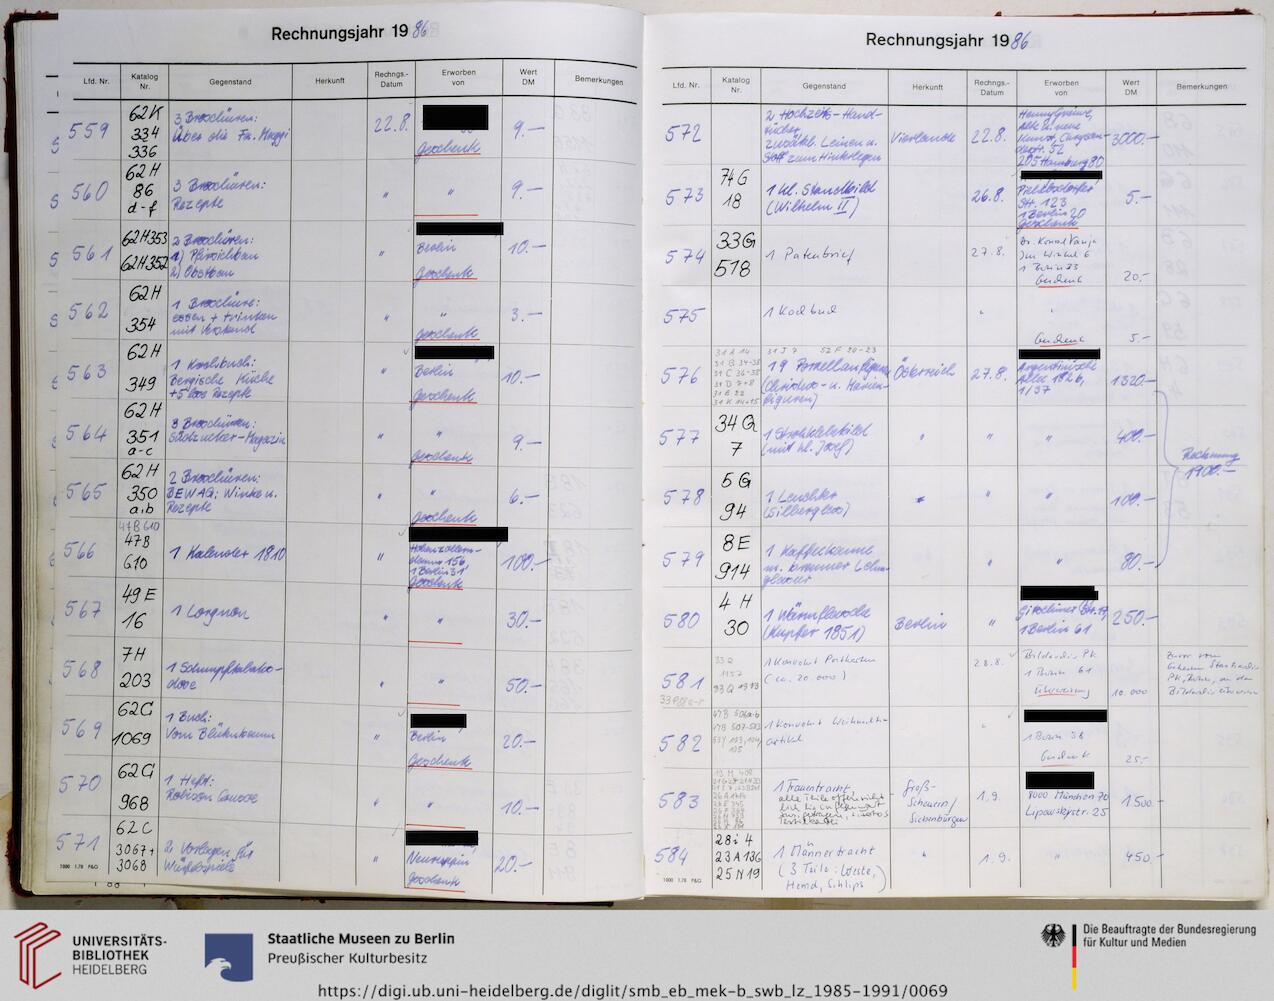 Rechnungsjahr 1986
Lfd. Nr. Katalog Nr. Gegenstand Herkunft Rechngs.-Datum Erworben von Wert DM Bemerkungen
559 62K 334 336 3 Broschüren: über die Fa. Maggi 22.8. Geschenk 9.-
560 62H 86 d-f 3 Broschüren: Rezepte " " 9.-
561 62H353 62H352 2 Broschüren: 1) Pfirsichbau 2) Obstbau " Berlin Geschenk 10.-
562 62H 354 1 Broschüre: essen + trinken mit Verstand " " Geschenk 3.-
563 62H 349 1 Kochbuch: Bergische Küche + 5000 Rezepte " Berlin Geschenk 10.-
564 62H 351 a-c 3 Broschüren: Südzucker-Magazin " " Geschenk 9.-
565 62H 350 a,b 2 Broschüren: BEWAG: Winke u. Rezepte " " Geschenk 6.-
566 47B 610 47B 610 1 Kalender 1810 " Hohenzollern-damm 156 1 Berlin 31 Geschenk 100.-
567 49E 16 1 Lorgnon " " 30.-
568 7H 203 1 Schnupftabaks-dose " " 50.-
569 62G 1069 1 Buch: Vom Blütenbaum " Berlin Geschenk 20.-
570 62G 968 1 Heft: Robinson Crusoe " " 10.-
571 62C 3067+ 3068 2 Vorlagen für Würfelspiele " Neuruppin Geschenk 20.-
1000 1.78 P&G
Rechnungsjahr 1986
Lfd. Nr. Katalog Nr. Gegenstand Herkunft Rechngs.-Datum Erworben von Wert DM Bemerkungen
572 2 Hochzeits-Hand-tücher, zusätzl. Leinen u. Stoff zum Hinterlegen Vierlande 22.8. Alte u. neue Kunst, 52 205 Hamburg 80 3000.-
573 74G 18 1 kl. Standbild (Wilhelm II) 26.8. Pichelsdorfer Str. 123 1 Berlin 20 Geschenk 5.-
574 33G 518 1 Patenbrief 27.8. Dr. Konrad Vanja Im Winkel 6 1 Berlin 33 Geschenk 20.-
575 1 Kochbuch " " Geschenk 5.-
576 31 A 14 31 B 34-38 31 C 36-38 31 D 7+8 31 E 22 31 K 14+15 31 J 7 52 F 20-23 19 Porzellanfiguren (Christus- u. Marien-figuren) Österreich 27.8. Argentinische Allee 182b, 1/37 1320.-
577 34Q 7 1 Strohklebebild (mit hl. Josef) " " " 400.-
578 5G 94 1 Leuchter (Silberglas) " " " 100.-
Rechnung 1900.-
579 8E 914 1 Kaffeekanne m. brauner Lehm-glasur " " 80.-
580 4H 30 1 Wärmflasche (Kupfer 1851) Berlin " Gitschiner Str. 1 Berlin 61 250.-
581 33Q 1157 33Q 1 Konvolut Postkarten (ca. 20 000) 28.8. Bildarchiv PK 1 Berlin 61 Überweisung 10 000 Zuvor vom Geheimen Staatsarchiv PK, Berlin, an das Bildarchiv überwiesen
582 47B 506a-b 47B 507-513 1 Konvolut Weihnachts-artikel " 1 Berlin 38 Geschenk 25.-
583 1 Frauentracht, alle Teile Groß-Scheuern/Siebenbürgen 1.9. 8000 München 70 Lipowskystr. 25 1500.-
584 28i 4 23A136 25N19 1 Männertracht (3 Teile: Weste, Hemd, Schlips) " 1.9. " 450.-
1000 1.78 P&G
UNIVERSITÄTS-
BIBLIOTHEK
HEIDELBERG
Staatliche Museen zu Berlin
Preußischer Kulturbesitz
Die Beauftragte der Bundesregierung
für Kultur und Medien
https://digi.ub.uni-heidelberg.de/diglit/smb_eb_mek-b_swb_lz_1985-1991/0069